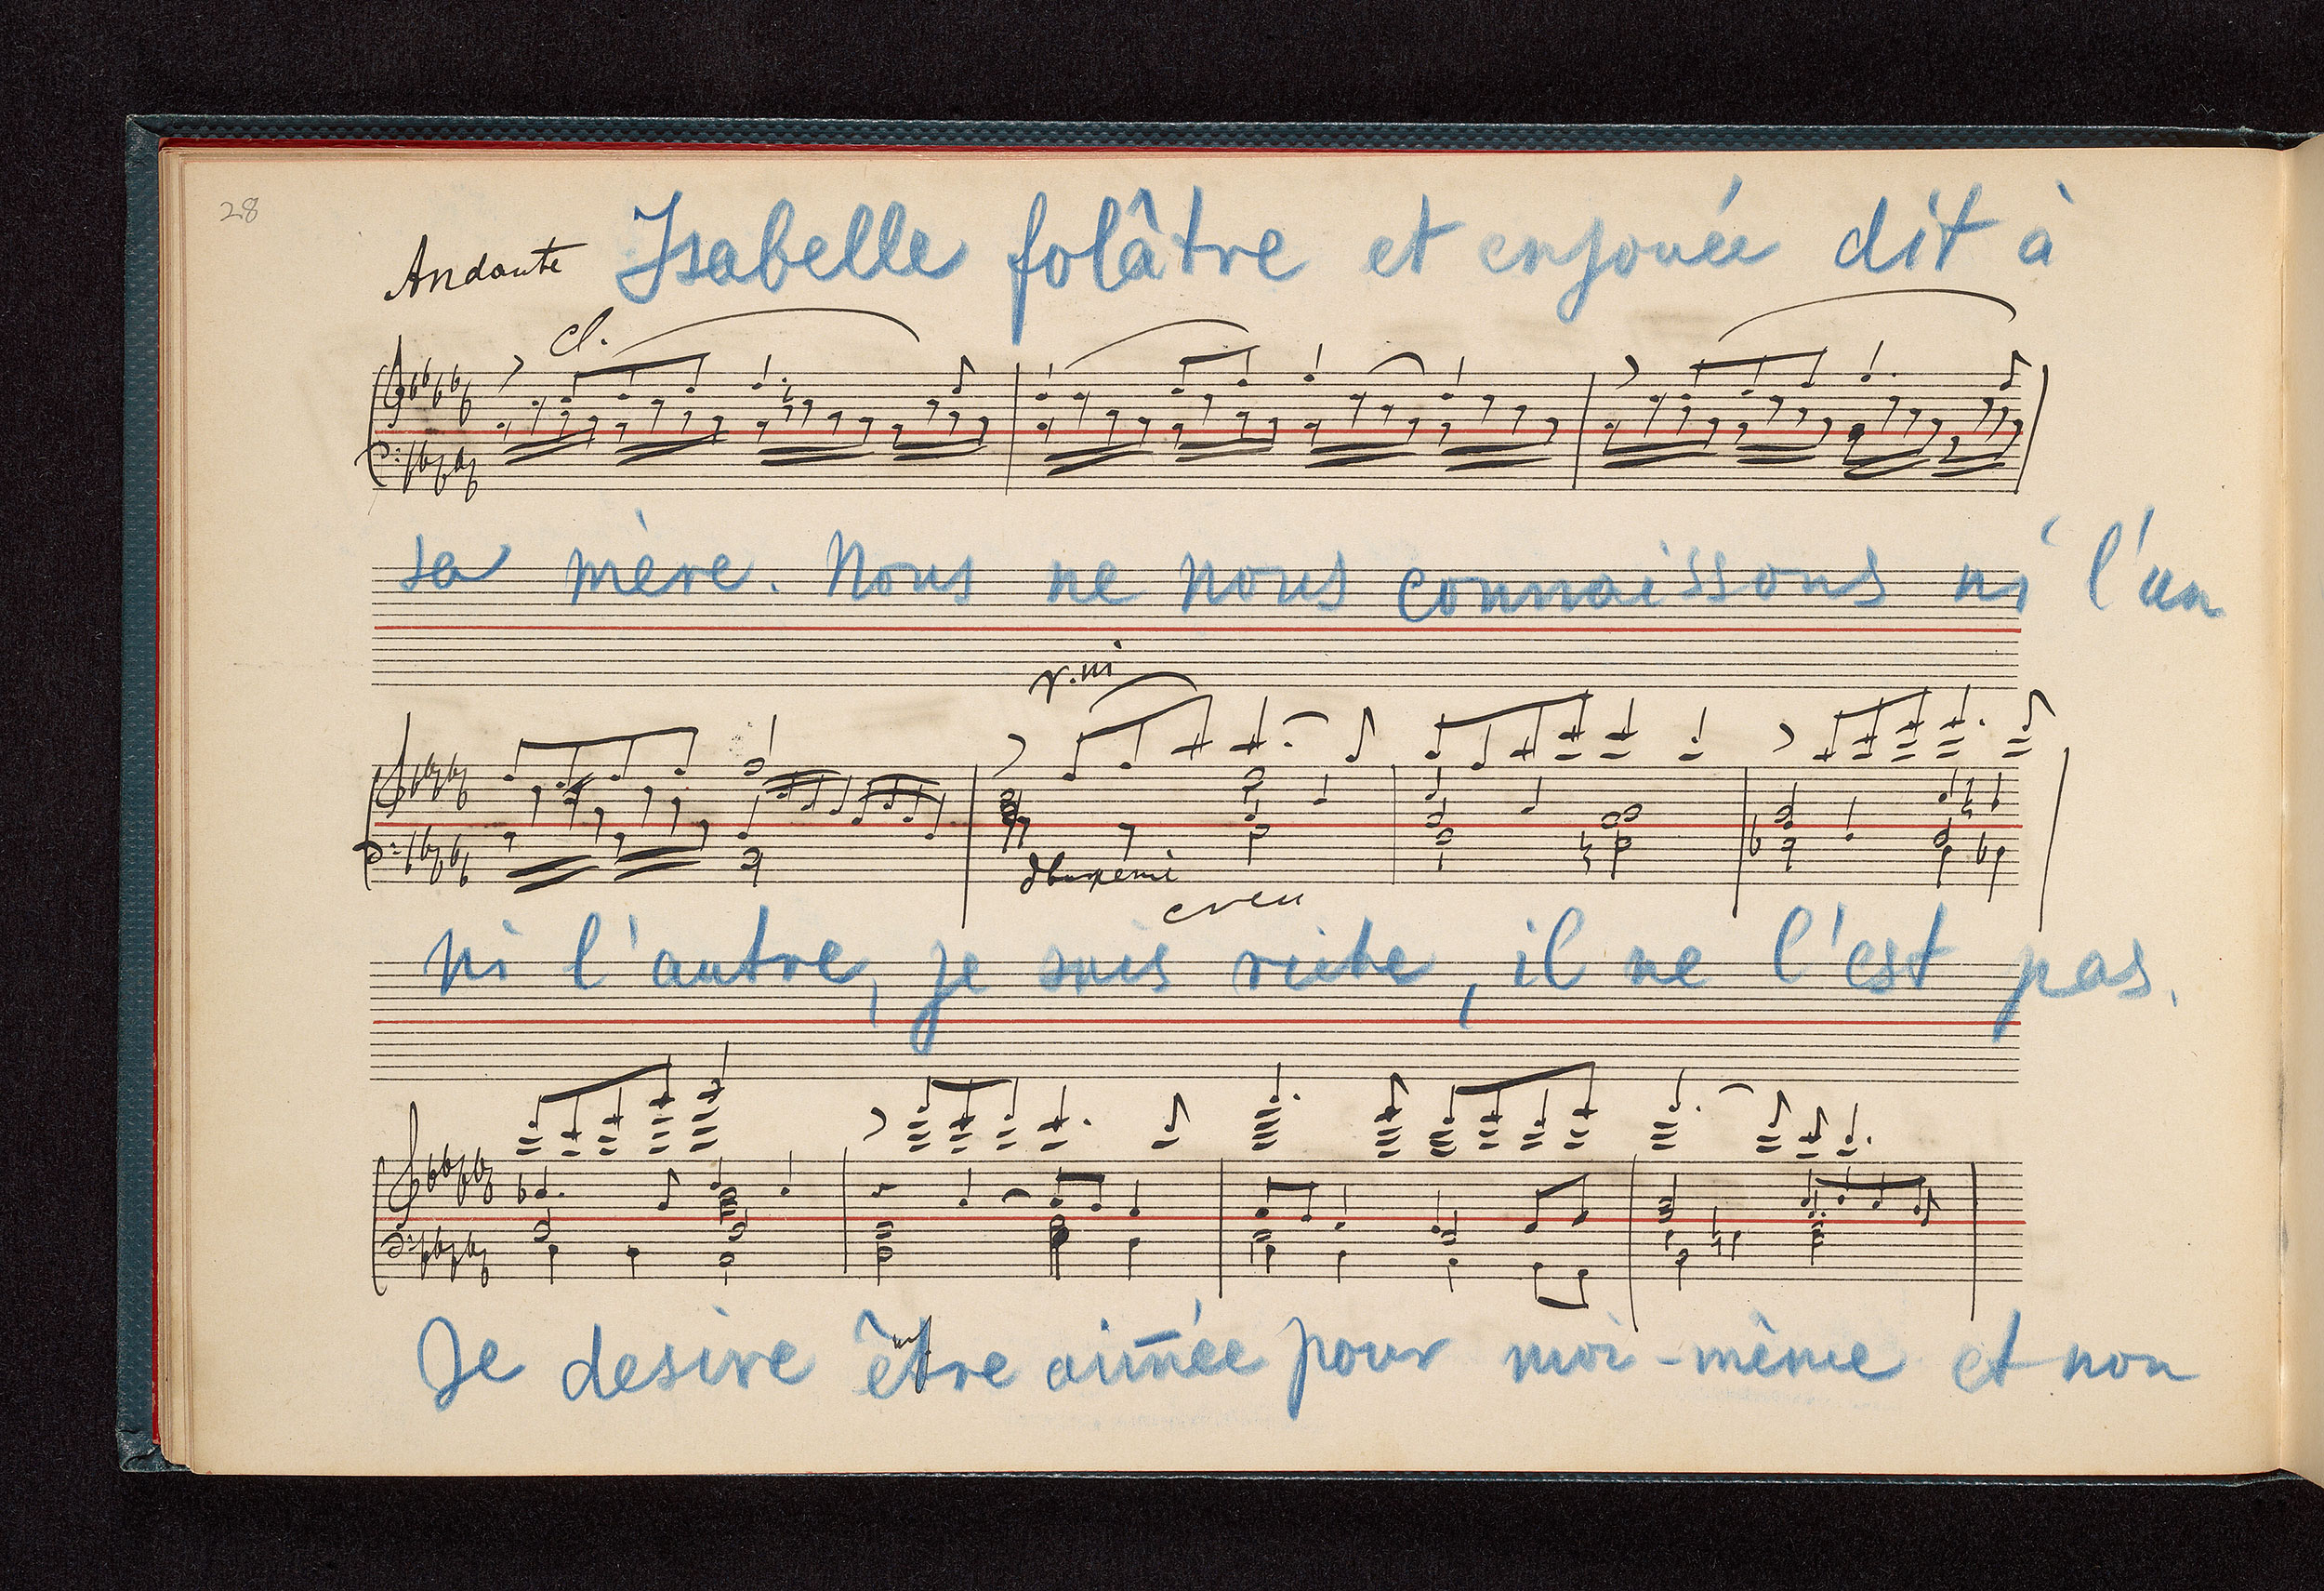 28
Andante Isabelle folâtre et enjouée dit à
cl.
sa mère. Nous ne nous connaissons ni l'un
v.ni
ni l'autre, je suis riche, il ne l'est pas.
Je desire être aimée pour moi-même et non